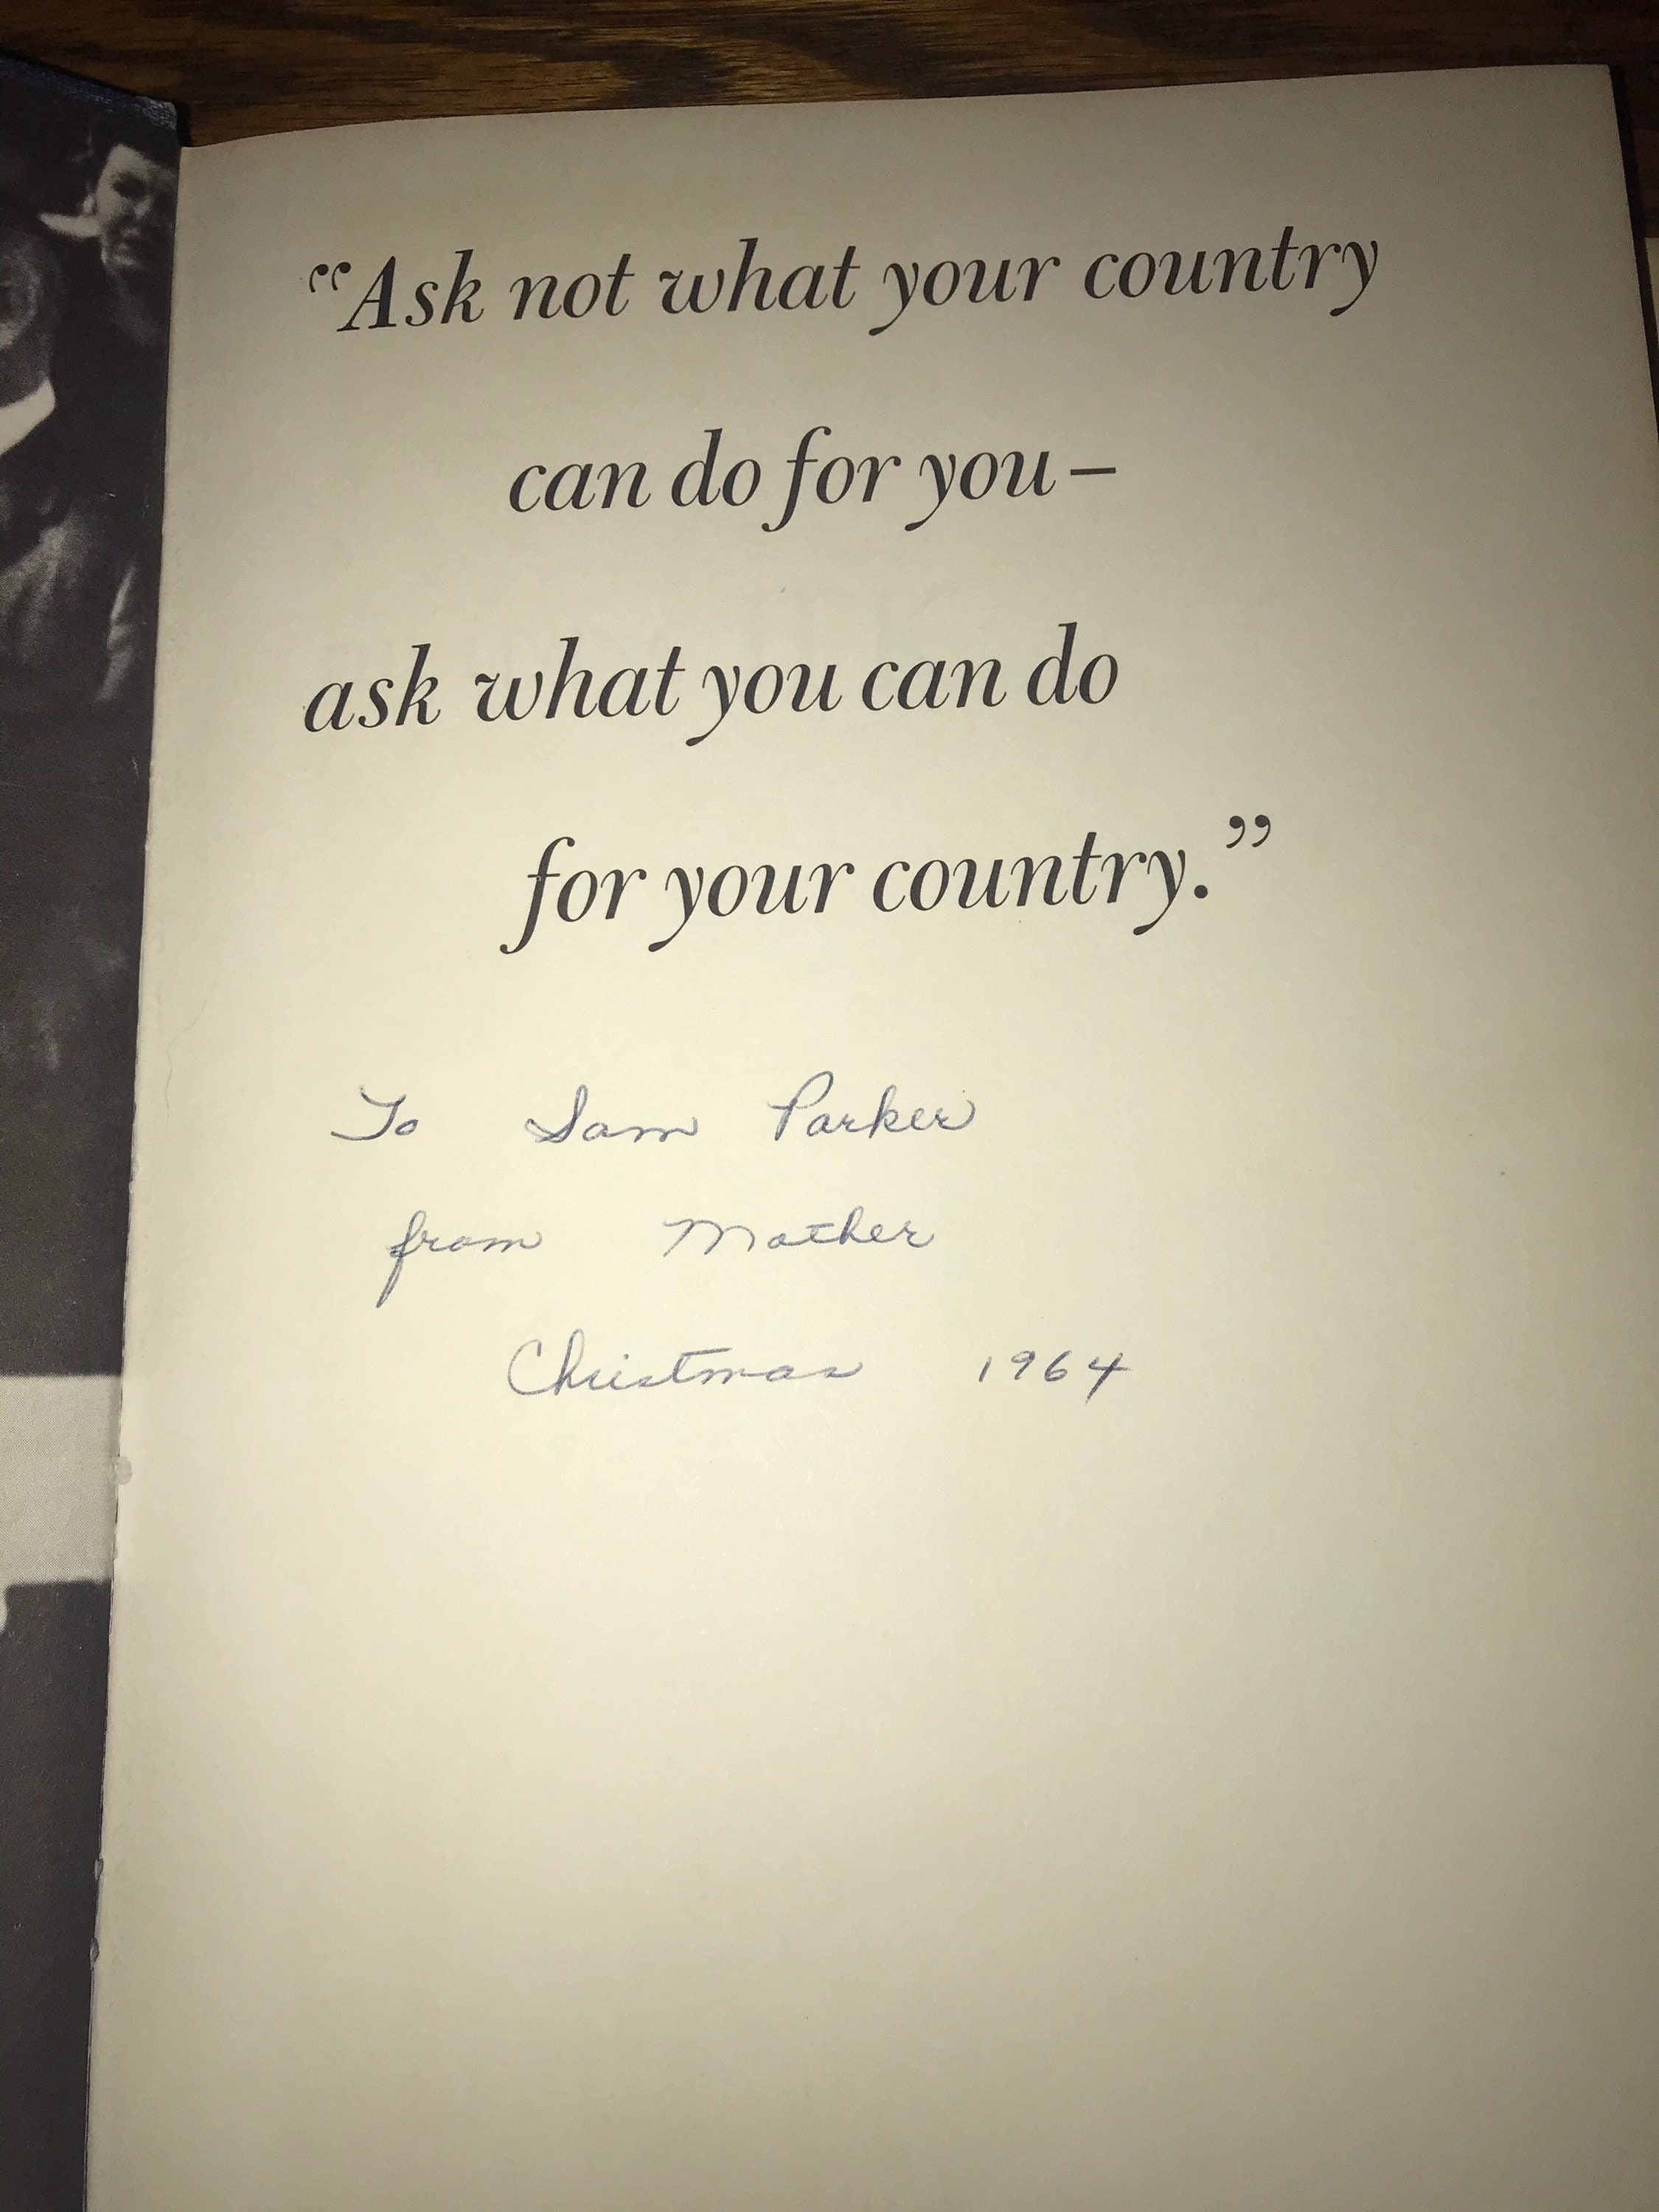 “Ask not what your country
can do for you–
ask what you can do
for your country.”
To Sam Parker
from Mother
Christmas 1964